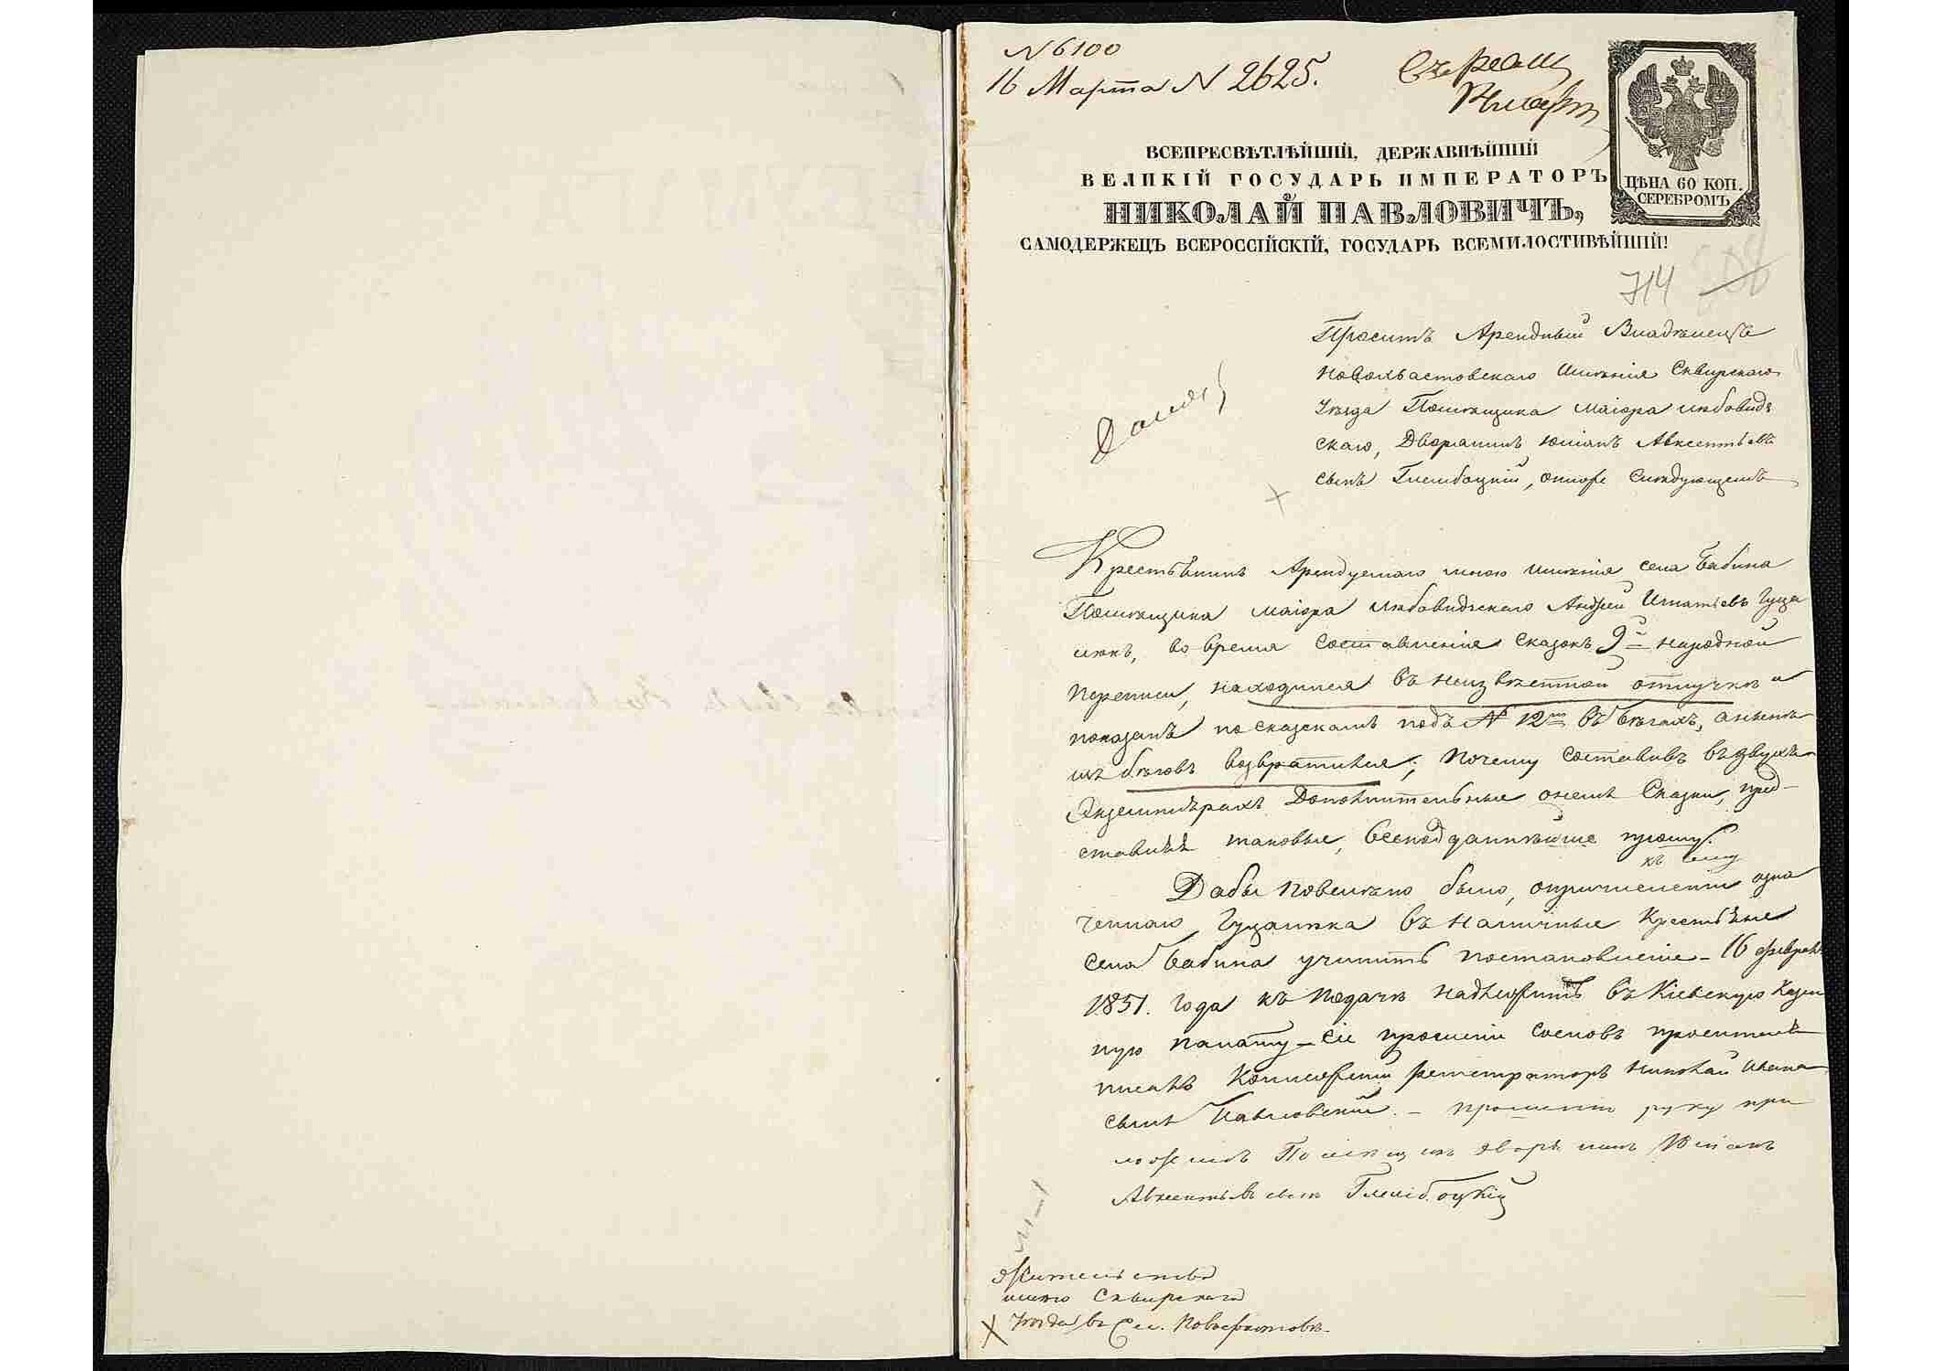 N 6100
16 Марта N 2625.
ЦѢНА 60 КОП.
СЕРЕБРОМЪ
ВСЕПРЕСВѢТЛѢЙШІЙ, ДЕРЖАВНѢЙШІЙ
ВЕЛИКІЙ ГОСУДАРЬ ИМПЕРАТОРЪ
НИКОЛАЙ ПАВЛОВИЧЪ,
САМОДЕРЖЕЦЪ ВСЕРОССІЙСКІЙ, ГОСУДАРЬ ВСЕМИЛОСТИВѢЙШІЙ!
714
Проситъ Арендный Владѣлецъ
Новохвастовскаго Имѣнія Сквирскаго
Уѣзда Помѣщика Маіора
скаго, Дворянинъ Юліянъ Авксентіевъ
сынъ Глембоцкій, о слѣдующемъ
Крестьянинъ Арендуемаго мною имѣнія села Бабина
Помѣщика Маіора Андрей Игнатіевъ Гуца
люкъ, во время составленія сказокъ 9й народной
Переписи, находился въ неизвѣстной отлучкѣ и
показанъ по сказкамъ подъ N 12мъ въ бѣгахъ, а нынѣ
изъ бѣговъ возвратился; почему составивъ въ двухъ
Экземплярахъ Дополнительные о немъ Сказки, пред-
ставляя таковые, всеподданнѣйше прошу.
къ сему
Дабы повелѣно было, о причисленіи озна
ченнаго Гуцалюка въ наличные Крестьяне
села Бабина учинить постановленіе – 16 февраля
1851. года къ подачѣ надлежитъ въ Кіевскую Казен
ную палату – сіе прошеніе со словъ просителя
писалъ Коллежскій регистраторъ Николай
сынъ Павловскій. – прошенію руку при
ложилъ дворянинъ Юліянъ
Авксентіевъ сынъ Глембоцкій
Жительство
имѣю Сквирскаго
Уѣзда въ Сел. Новохвастовѣ.